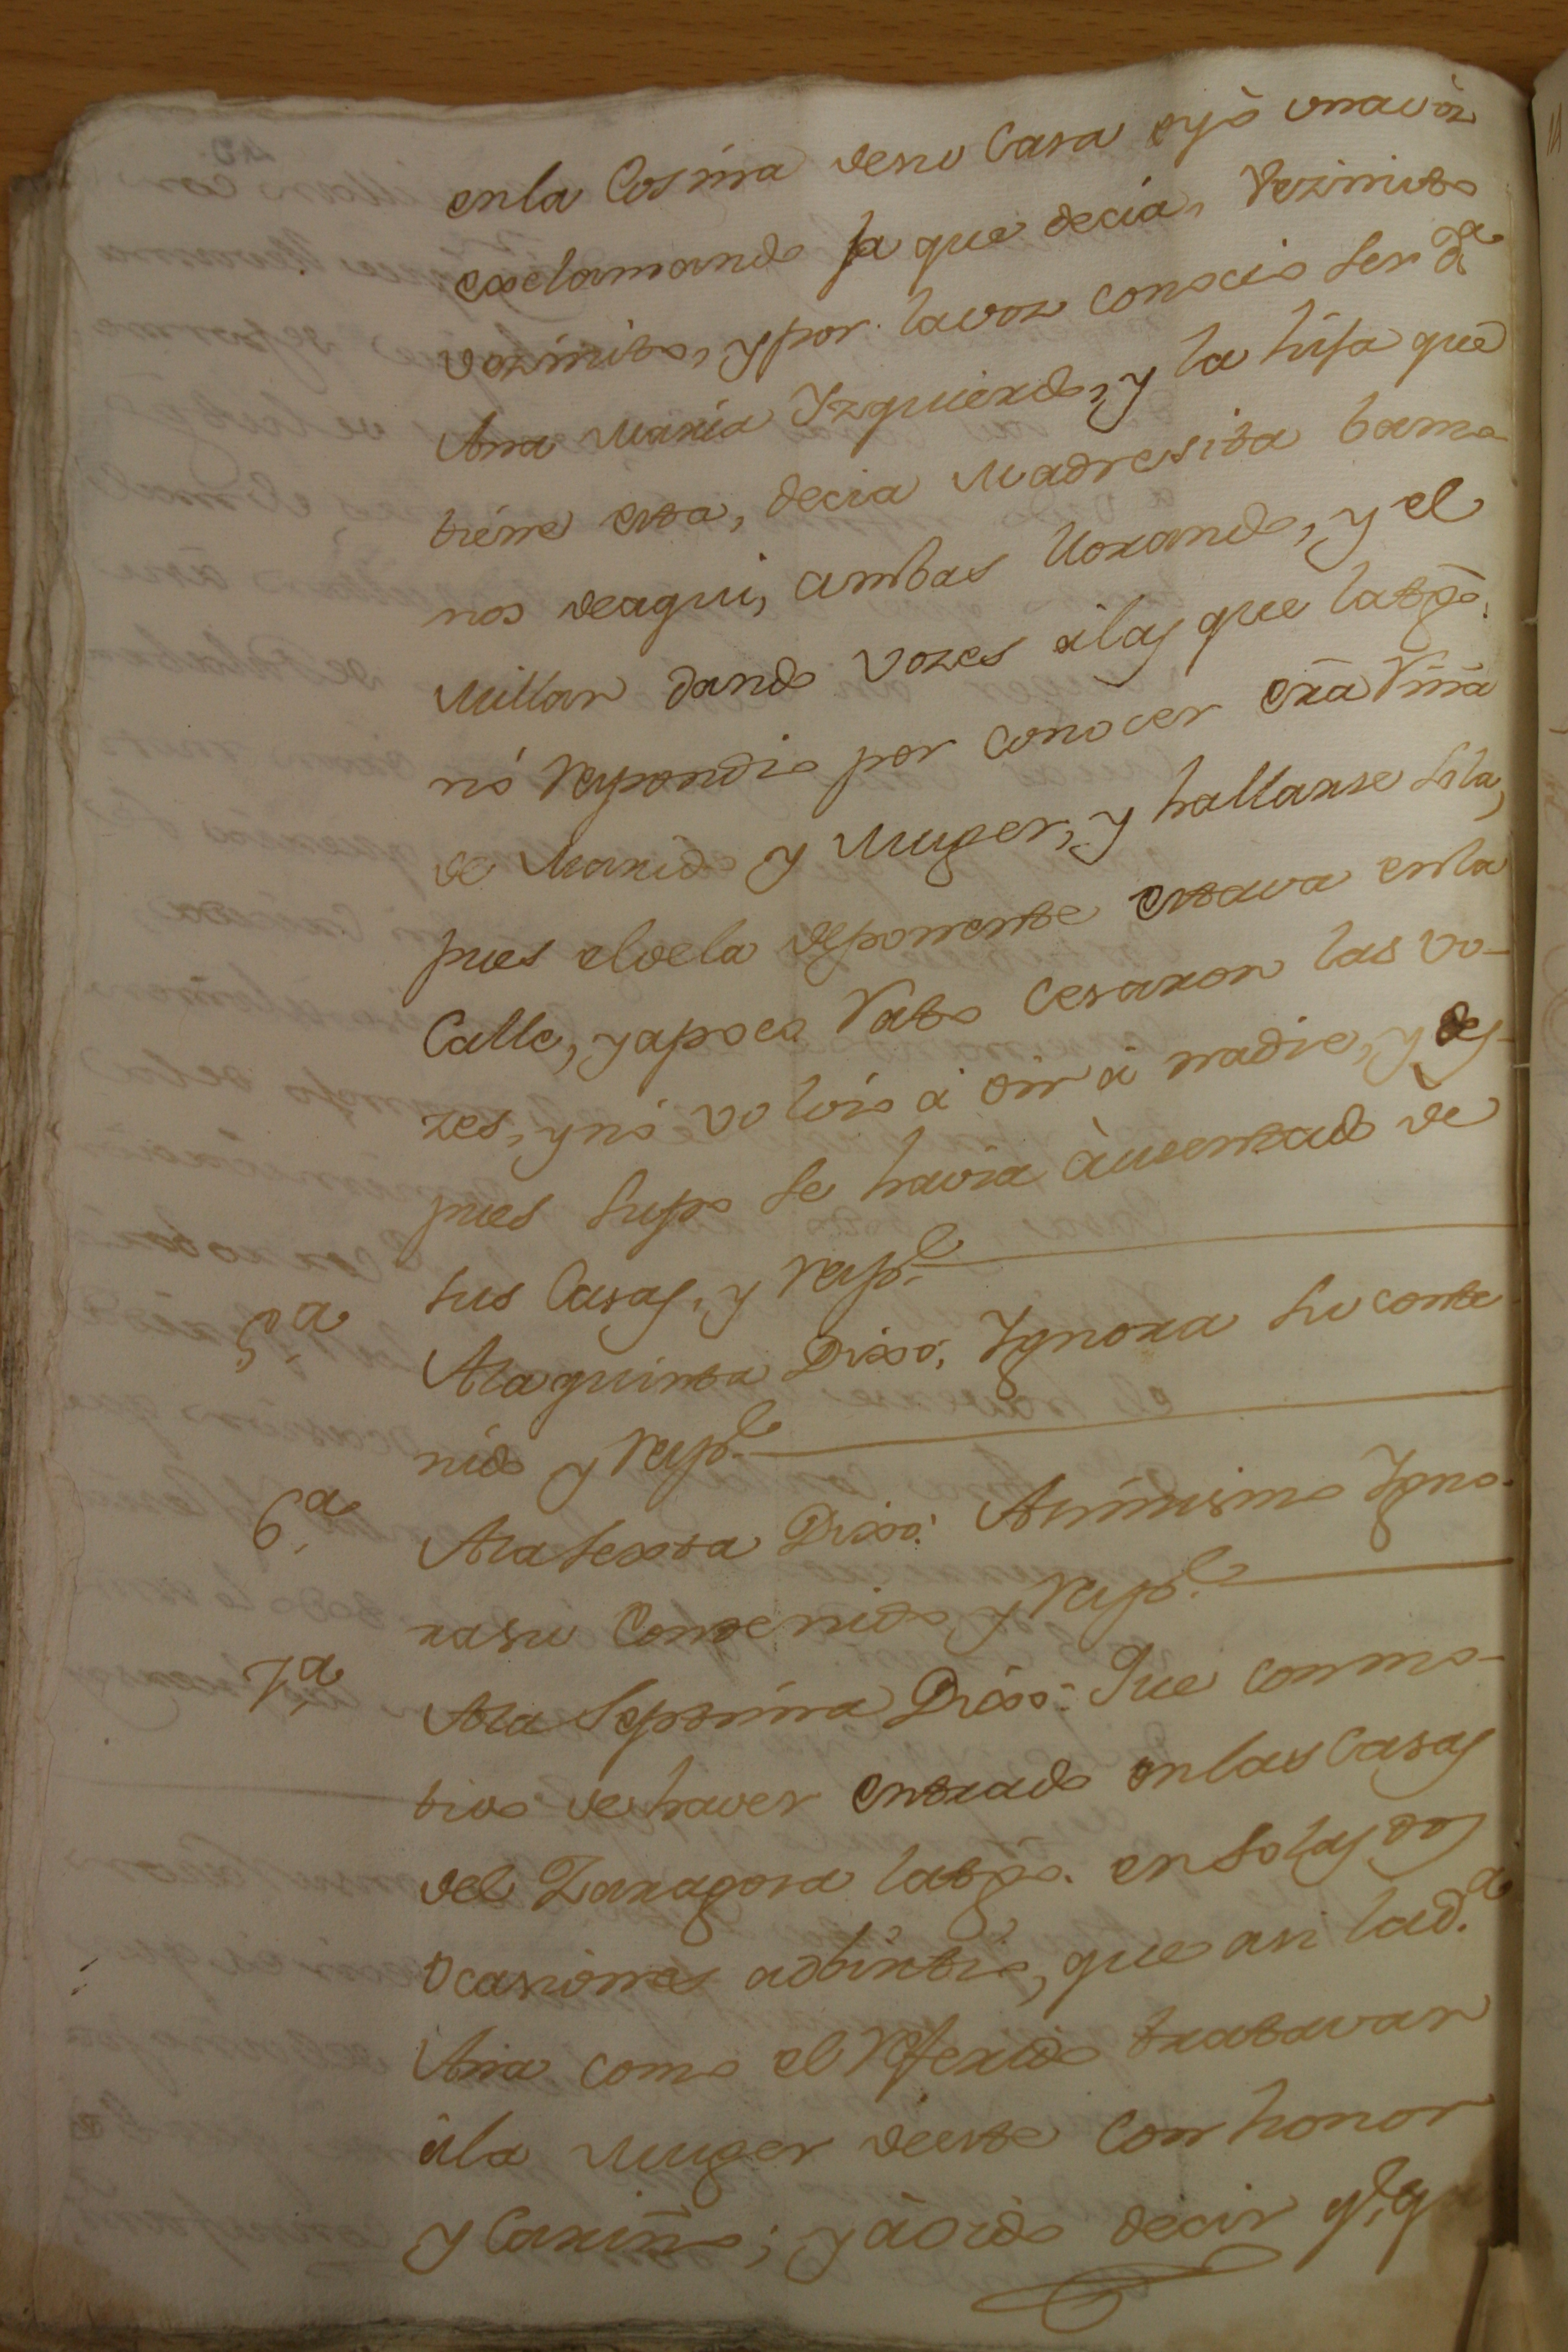 enla Cosina desu Casa oyò unavòz
exclamando la que decia, Vezinito
vezinito, y por la voz conocio ser Dª
Ana Maria Yzquierdo, y la hija que
tiene esta, decia Madresita bamo
nos deaqui, ambas lloxando, y el
Millan dando vozes àlas que latgò.
nò Respondio por conocer exa Riña
de Marido y Muger, y hallarse sola,
pues el dela deponente estava enla
Calle, yapoco Rato cesaxon las vo-
zes, ynò volvio à oir à nadie, y des-
pues supo se havia àusentado de
sus Casas, y Respde
5.ª Alaquinta Dixò; Ygnoxa su conte
nido y Respde
6.ª Ala sexta Dixò: Asimismo Ygno-
xasu Contenido y Respde
7.ª Ala Septima Dixò: Que conmo-
tivo dehaver entxado enlas Casas
del Zaxagoza latgo. en solas dos
Ocasiones adbintio, que asi lad.ª
Ana como el Refexido txatavan
àla Muger deeste con honor
y Caxiño; y àoido decir q.e